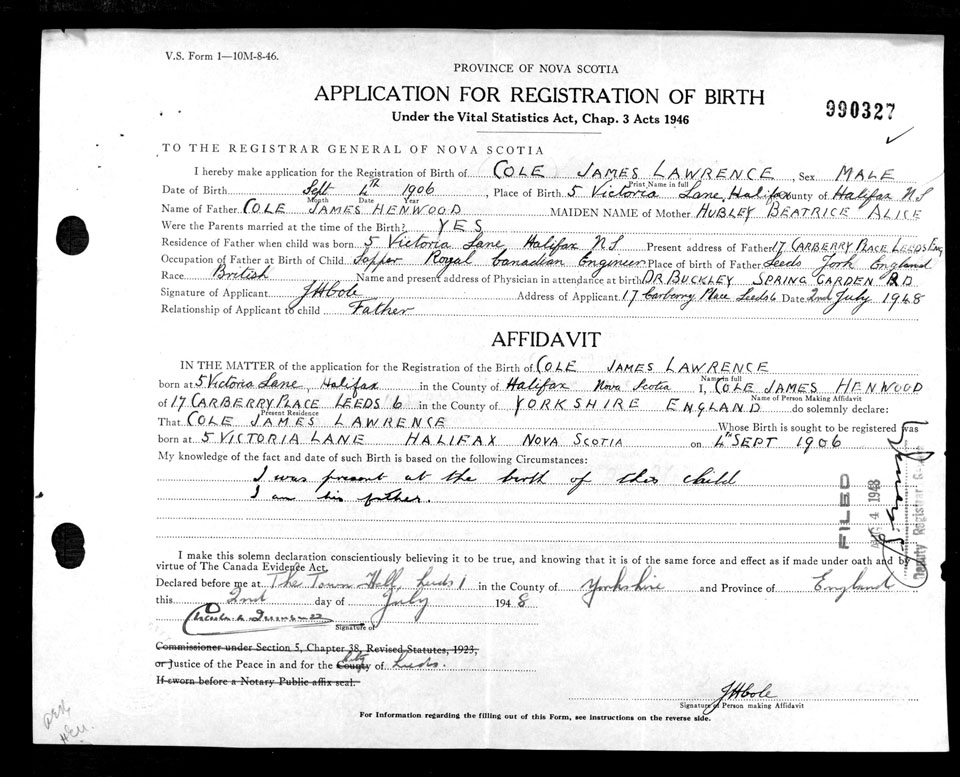 V.S. Form 1—10M-8-46.
PROVINCE OF NOVA SCOTIA
APPLICATION FOR REGISTRATION OF BIRTH
990327
Under the Vital Statistics Act, Chap. 3 Acts 1946
TO THE REGISTRAR GENERAL OF NOVA SCOTIA
I hereby make application for the Registration of Birth of COLE JAMES LAWRENCE, Sex MALE
Print Name in full
Date of Birth Sept 4th 1906, Place of Birth 5 Victoria Lane, Halifax County of Halifax NS
Month Date Year
Name of Father COLE JAMES HENWOOD MAIDEN NAME of Mother HUBLEY BEATRICE ALICE
Were the Parents married at the time of the Birth? YES
Residence of Father when child was born 5 Victoria Lane Halifax NS Present address of Father 17 CARBERRY PLACE LEEDS Eng
Occupation of Father at Birth of Child Sapper Royal Canadian Engineer Place of birth of Father Leeds York England
Race British Name and present address of Physician in attendance at birth DR BUCKLEY SPRING GARDEN RD
Signature of Applicant JHCole Address of Applicant 17 Carberry Place Leeds 6 Date 2nd July 1948
Relationship of Applicant to child Father
AFFIDAVIT
IN THE MATTER of the application for the Registration of the Birth of COLE JAMES LAWRENCE
Name in full
born at 5 Victoria Lane, Halifax in the County of Halifax Nova Scotia I, COLE JAMES HENWOOD
Name of Person Making Affidavit
of 17 CARBERRY PLACE LEEDS 6 in the County of YORKSHIRE ENGLAND do solemnly declare:
Present Residence
That COLE JAMES LAWRENCE Whose Birth is sought to be registered was
born at 5 VICTORIA LANE HALIFAX NOVA SCOTIA on 4th SEPT 1906
My knowledge of the fact and date of such Birth is based on the following Circumstances:
I was present at the birth of this child
I am his father.
FILED
4 1948
Deputy Registrar
I make this solemn declaration conscientiously believing it to be true, and knowing that it is of the same force and effect as if made under oath and by
virtue of The Canada Evidence Act.
Declared before me at The Town Hall, Leeds 1 in the County of Yorkshire and Province of England
this 2nd day of July 1948
Signature of
Commissioner under Section 5, Chapter 38, Revised Statutes, 1923,
or Justice of the Peace in and for the County City of Leeds.
If sworn before a Notary Public affix seal.
JHCole
Signature of Person making Affidavit
For Information regarding the filling out of this Form, see instructions on the reverse side.